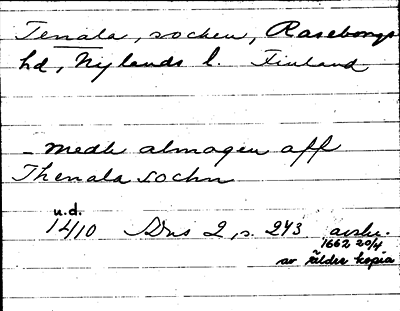 Tenala, socken, Raseborgs
hd, Nylands l. Finland
– medh almogen aff
Thenala sochn
u.d.
1410 Dns 2, s. 243 avskr.
1662 20/4
av äldre kopia